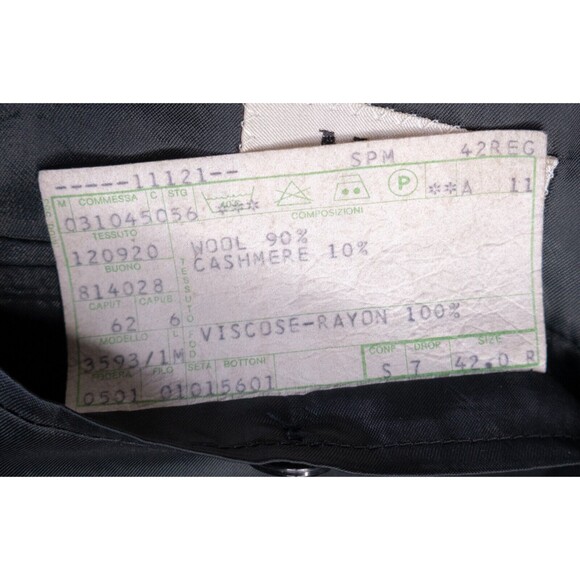 SPM 42REG
-----11121--
M COMMESSA C STG
031045056 *** P **A 11
COMPOSIZIONI
TESSUTO
120920 WOOL 90%
CASHMERE 10%
BUONO
814028
TESSUTO
62 6 VISCOSE-RAYON 100%
FOD
MODELLO
3593/1M
FILO SETA BOTTONI CONF. DROP SIZE
0501 01015601 S 7 42.0 R